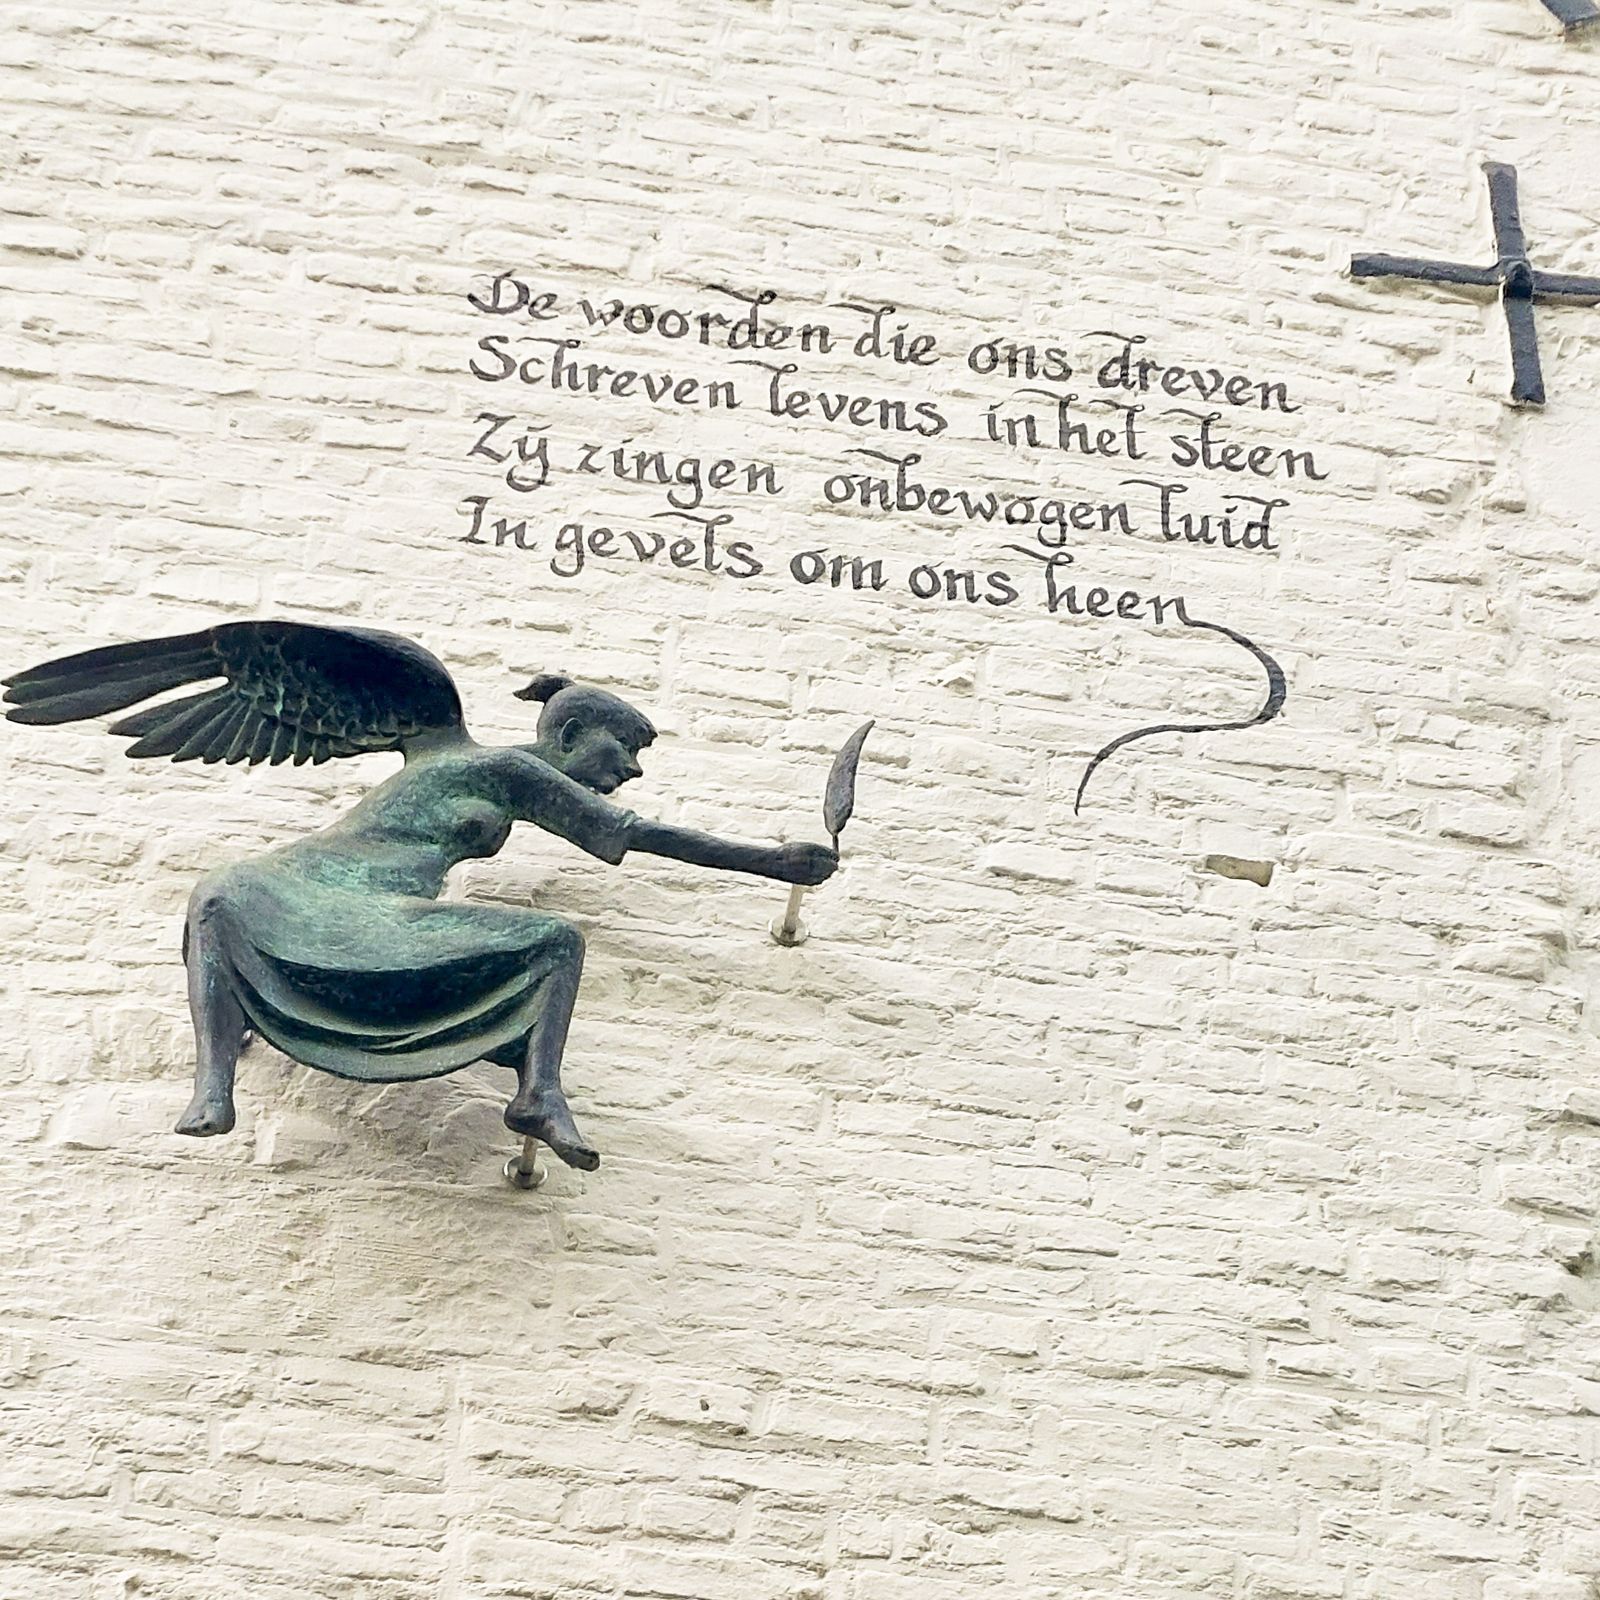 De woorden die ons dreven
Schreven levens in het steen
Zij zingen onbewogen luid
In gevels om ons heen